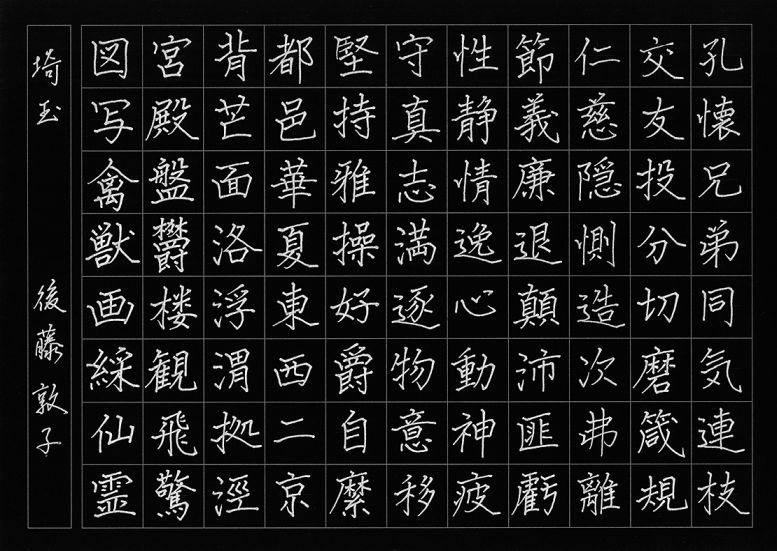 孔懐兄弟同気連枝
交友投分切磨箴規
仁慈隠惻造次弗離
節義廉退顛沛匪虧
性静情逸心動神疲
守真志満逐物意移
堅持雅操好爵自縻
都邑華夏東西二京
背芒面洛浮渭拠涇
宮殿盤欝楼観飛驚
図写禽獣画綵仙霊
埼玉 後藤敦子